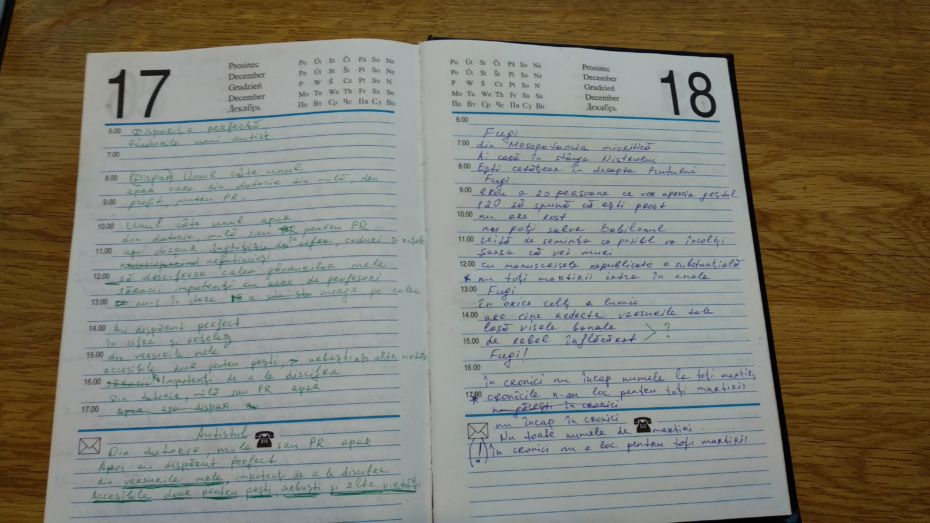 17
Prosinec
December
Grudzień
December
Декабрь
Po Út St Čt Pá So Ne
Po Ut St Št Pi So Ne
P W Ś Cz Pt So N
Mo Tu We Th Fr Sa Su
Пo Вт Ср Че Пя Су Во
6.00 Dispariția perfectă
Gândurile unui autist
7.00
8.00 Dispar Unul câte unul
apar care din datorie din milă, din
9.00 profit pentru PR.
10.00 Unul câte unul apar
din datorie, milă sau PR pentru PR
11.00 apoi dispar în cifrea coduri și
neputincioși
12.00 să descifreze calea gândurilor mele
săracii impotenți cu acea de profesori
13.00 nu-s în stare a sta sau merge pe calea
14.00 Au dispărent perfect
în cifre și
15.00 din versurile mele
accesibile doar pentru pești rebusti și alte vietăți
16.00 Impotenți de a le discifra
Din datorie, milă sau PR apar
17.00 apar apar dispar
Autistul
Din datorie, milă sau PR apar
Apoi au dispărent perfect
din versurile mele, impotenți de a le discifra
Accesibile doar pentru pești, rebusti și alte vietăți
18
Prosinec
December
Grudzień
December
Декабрь
Po Út St Čt Pá So Ne
Po Ut St Št Pi So Ne
P W Ś Cz Pt So N
Mo Tu We Th Fr Sa Su
Пo Вт Ср Че Пя Су Во
6.00
Fugi
7.00 din Mesopotamia mioritică
Ai casă în stânga Nistrului
8.00 Ești cetățean în dreapta Prutului
Fugi
9.00 erou a 20 persoane ce vor aprecia gestul
120 să spună că ești prost
10.00 nu are rost
nu poți salva Babilonul
11.00 Uită de semința ce posibil va încolți
Șansa că vei muri
12.00 cu manuscrisele nepublicate e substanțială
* nu toți martirii intră în anale
13.00 Fugi
În orice colț a lumii
14.00 are cine redacta versurile tale
lasă visele banale
15.00 de rebel înflăcărat > ?
Fugi!
16.00
în cronici nu încap numele la toți martirii
17.00 * cronicile n-au loc pentru toți martirii
în cronici
nu încap în cronici
Nu toate numele de martiri ......
(!) în cronici nu e loc pentru toți martirii